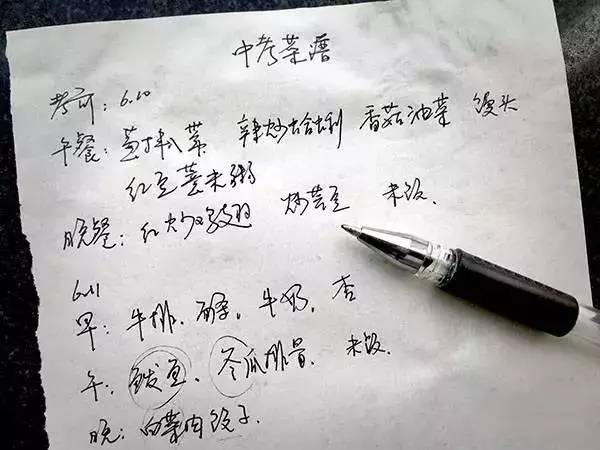 中考菜谱
考前：6.10
午餐： 辣炒蛤蜊 香菇油菜 馒头
红豆薏米粥
晚餐：红炒鸡翅 炒芸豆 米饭.
6.11
早：牛排、 牛奶. 杏
午：鲅鱼、冬瓜排骨. 米饭.
晚：白菜肉饺子.